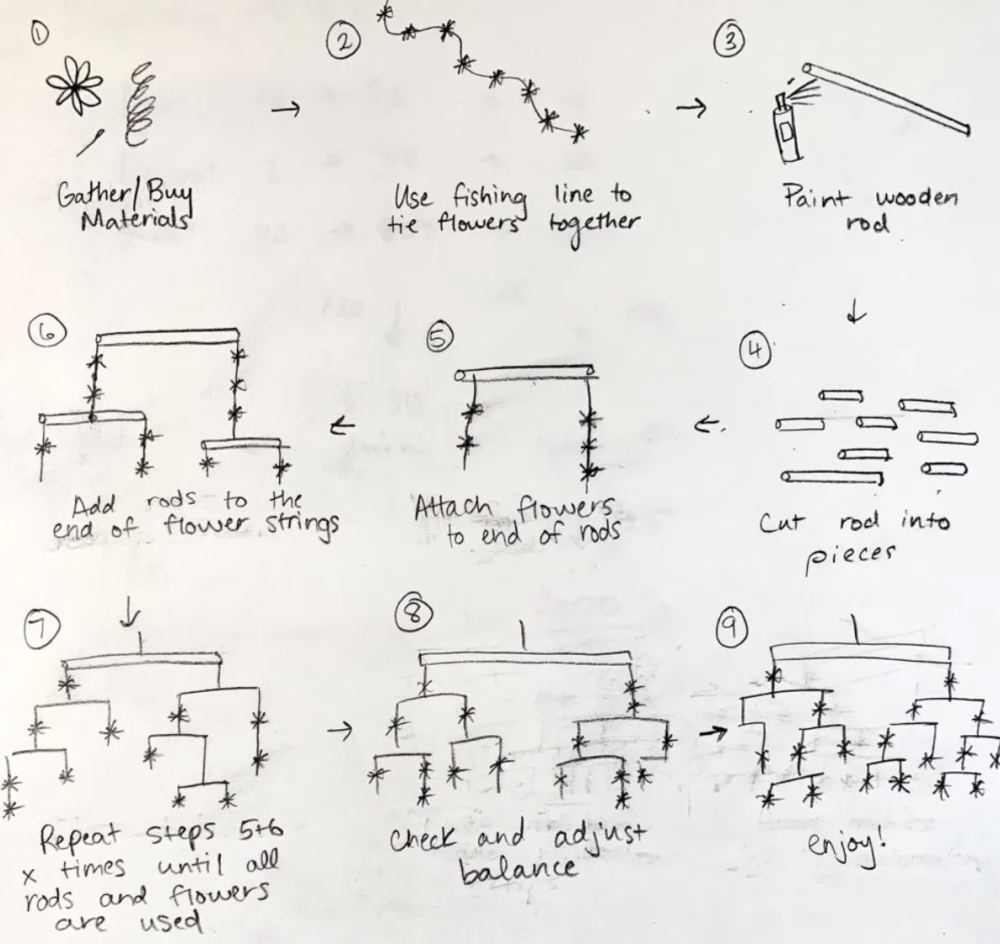 1
Gather/Buy
Materials
2
Use fishing line to
tie flowers together
3
Paint wooden
rod
4
Cut rod into
pieces
5
Attach flowers
to end of rods
6
Add rods to the
end of flower strings
7
Repeat steps 5+6
x times until all
rods and flowers
are used
8
Check and adjust
balance
9
enjoy!